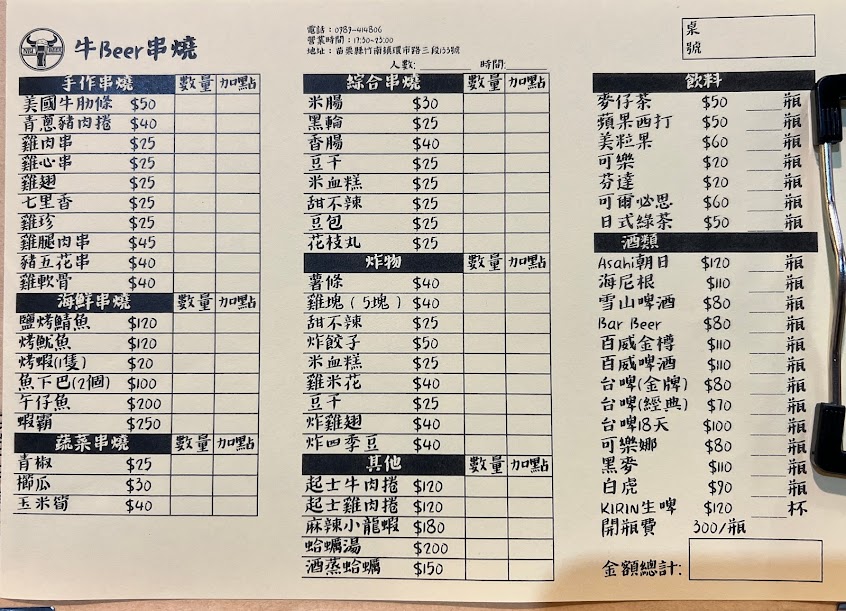 牛Beer串燒
電話：0989-414806
營業時間：17:30~23:00
地址：苗栗縣竹南鎮環市路三段153號
人數：　時間：
桌
號
手作串燒 數量 加點
美國牛肋條 $50
青蔥豬肉捲 $40
雞肉串 $25
雞心串 $25
雞翅 $25
七里香 $25
雞珍 $25
雞腿肉串 $45
豬五花串 $40
雞軟骨 $40
海鮮串燒 數量 加點
鹽烤鯖魚 $120
烤魷魚 $120
烤蝦(1隻) $20
魚下巴(2個) $100
午仔魚 $200
蝦霸 $250
蔬菜串燒 數量 加點
青椒 $25
櫛瓜 $30
玉米筍 $40
綜合串燒 數量 加點
米腸 $30
黑輪 $25
香腸 $40
豆干 $25
米血糕 $25
甜不辣 $25
豆包 $25
花枝丸 $25
炸物 數量 加點
薯條 $40
雞塊（5塊） $40
甜不辣 $25
炸餃子 $50
米血糕 $25
雞米花 $40
豆干 $25
炸雞翅 $40
炸四季豆 $40
其他 數量 加點
起士牛肉捲 $120
起士雞肉捲 $120
麻辣小龍蝦 $180
蛤蠣湯 $200
酒蒸蛤蠣 $150
飲料
麥仔茶 $50 瓶
蘋果西打 $50 瓶
美粒果 $60 瓶
可樂 $20 瓶
芬達 $20 瓶
可爾必思 $60 瓶
日式綠茶 $50 瓶
酒類
Asahi朝日 $120 瓶
海尼根 $110 瓶
雪山啤酒 $80 瓶
Bar Beer $80 瓶
百威金樽 $110 瓶
百威啤酒 $110 瓶
台啤(金牌) $80 瓶
台啤(經典) $70 瓶
台啤18天 $100 瓶
可樂娜 $80 瓶
黑麥 $110 瓶
白虎 $90 瓶
KIRIN生啤 $120 杯
開瓶費 300/瓶
金額總計：